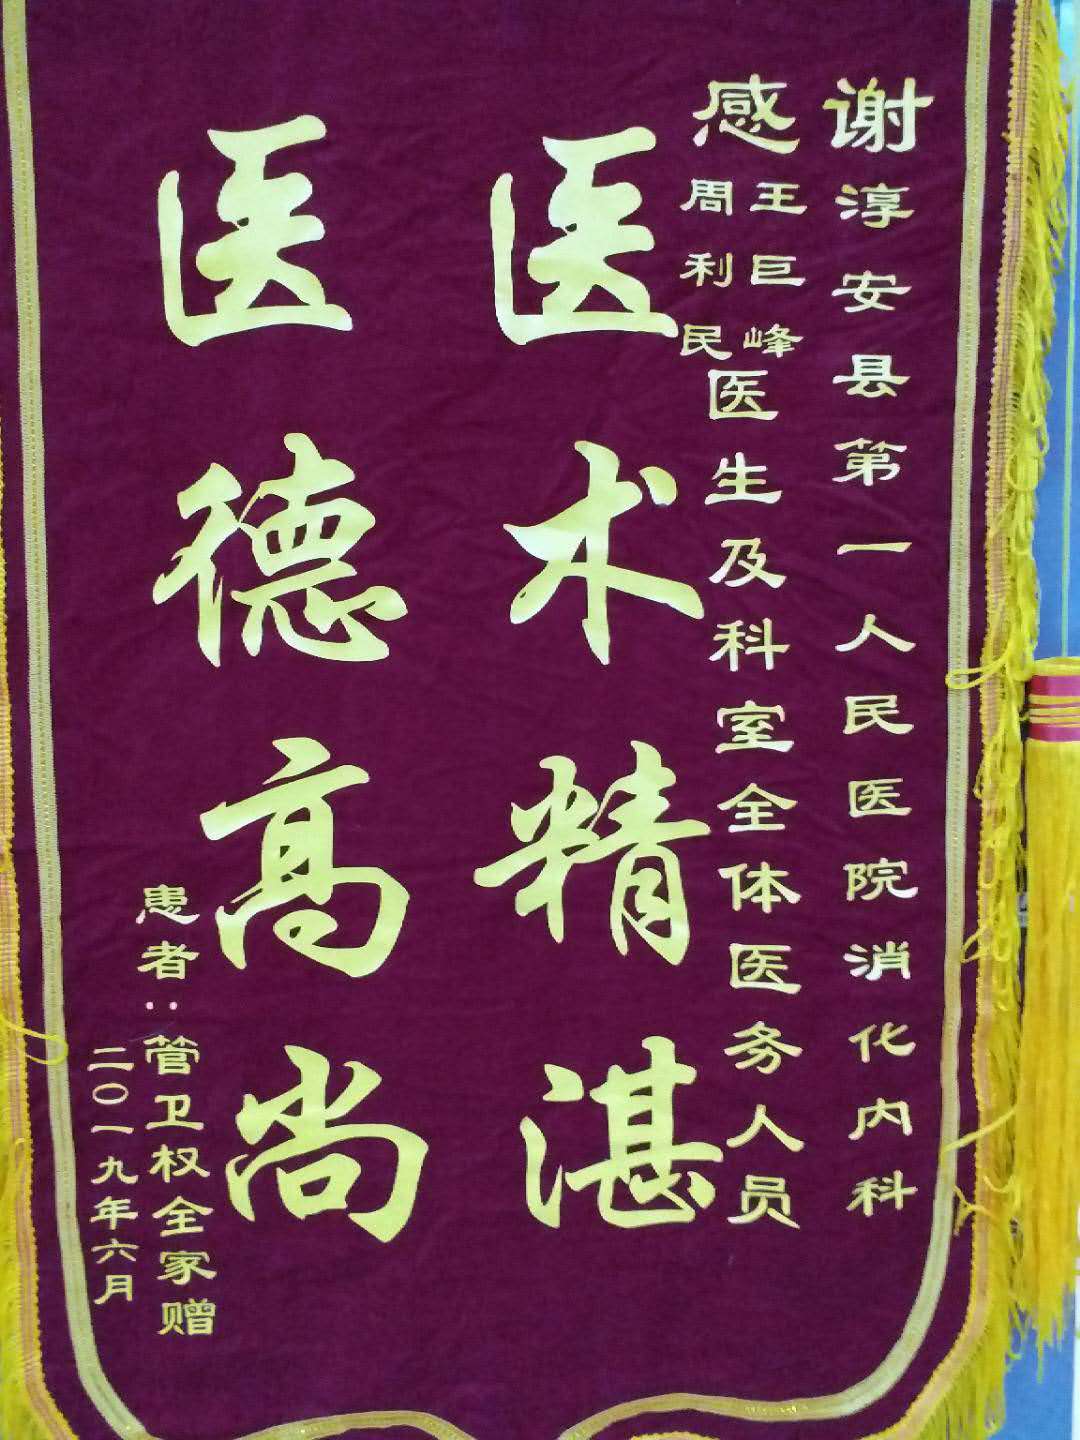 感谢淳安县第一人民医院消化内科
王巨峰
周利民
医生及科室全体医务人员
医术精湛
医德高尚
患者:管卫权全家赠
二〇一九年六月